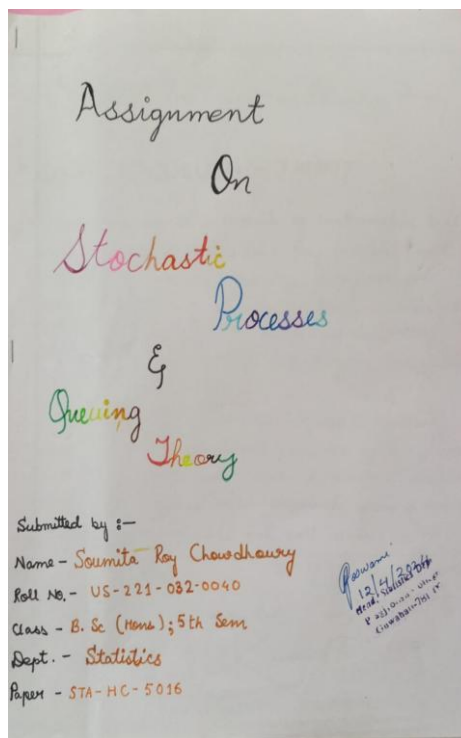 Assignment
On
Stochastic
Processes
&
Queuing
Theory
Submitted by :-
Name - Soumita Roy Chowdhoury
Roll No. - US-221-032-0040
Class - B. Sc (Hons); 5th Sem
Dept. - Statistics
Paper - STA-HC-5016
Goswami
Head,